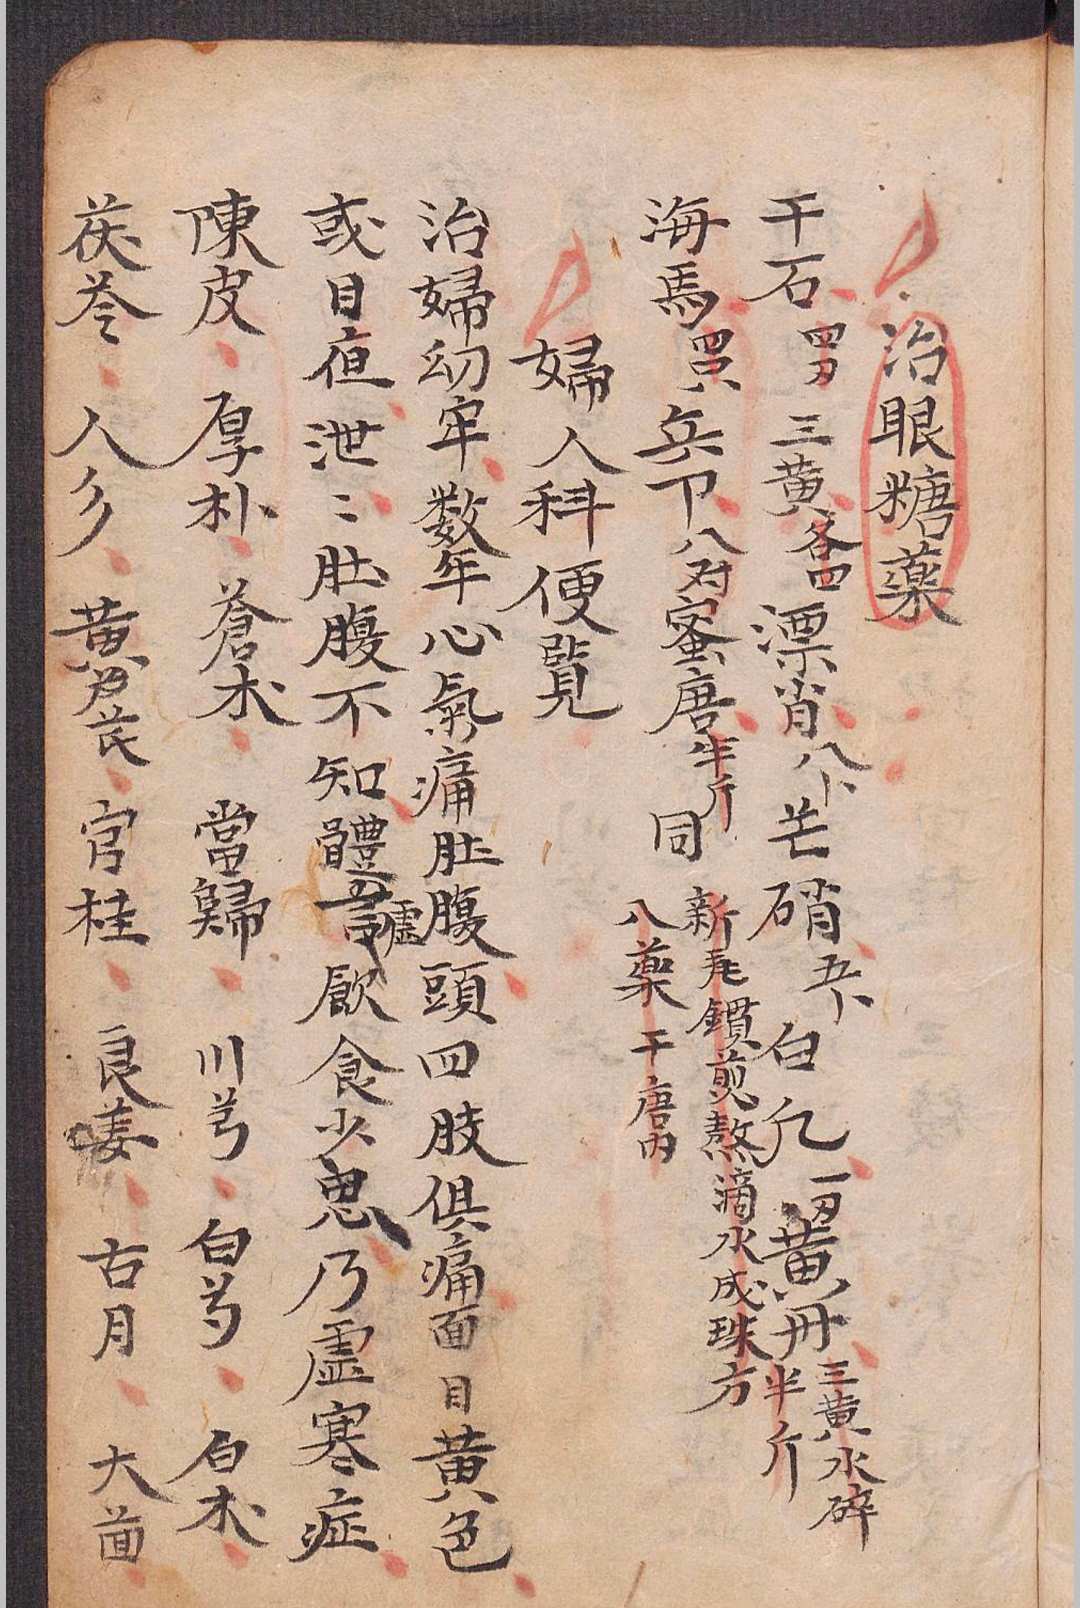 治眼糖薬
干石 三黄各四 漂肖八 芒硝五 白凡一 黄丹半斤 三黄水碎
海馬 兵下八对蜜唐半斤 同
新 鑽煎熬滴水成珠方
八薬干唐内
婦人科便覧
治婦幼牢数年心氣痛肚腹頭四肢俱痛面目黄色
或日夜泄〻肚腹不知體虚飲食少思乃虛寒症
陳皮 厚朴 蒼木 當歸 川芎 白芍 白木
茯苓 人參 黄芪 官桂 良姜 古月 大茴